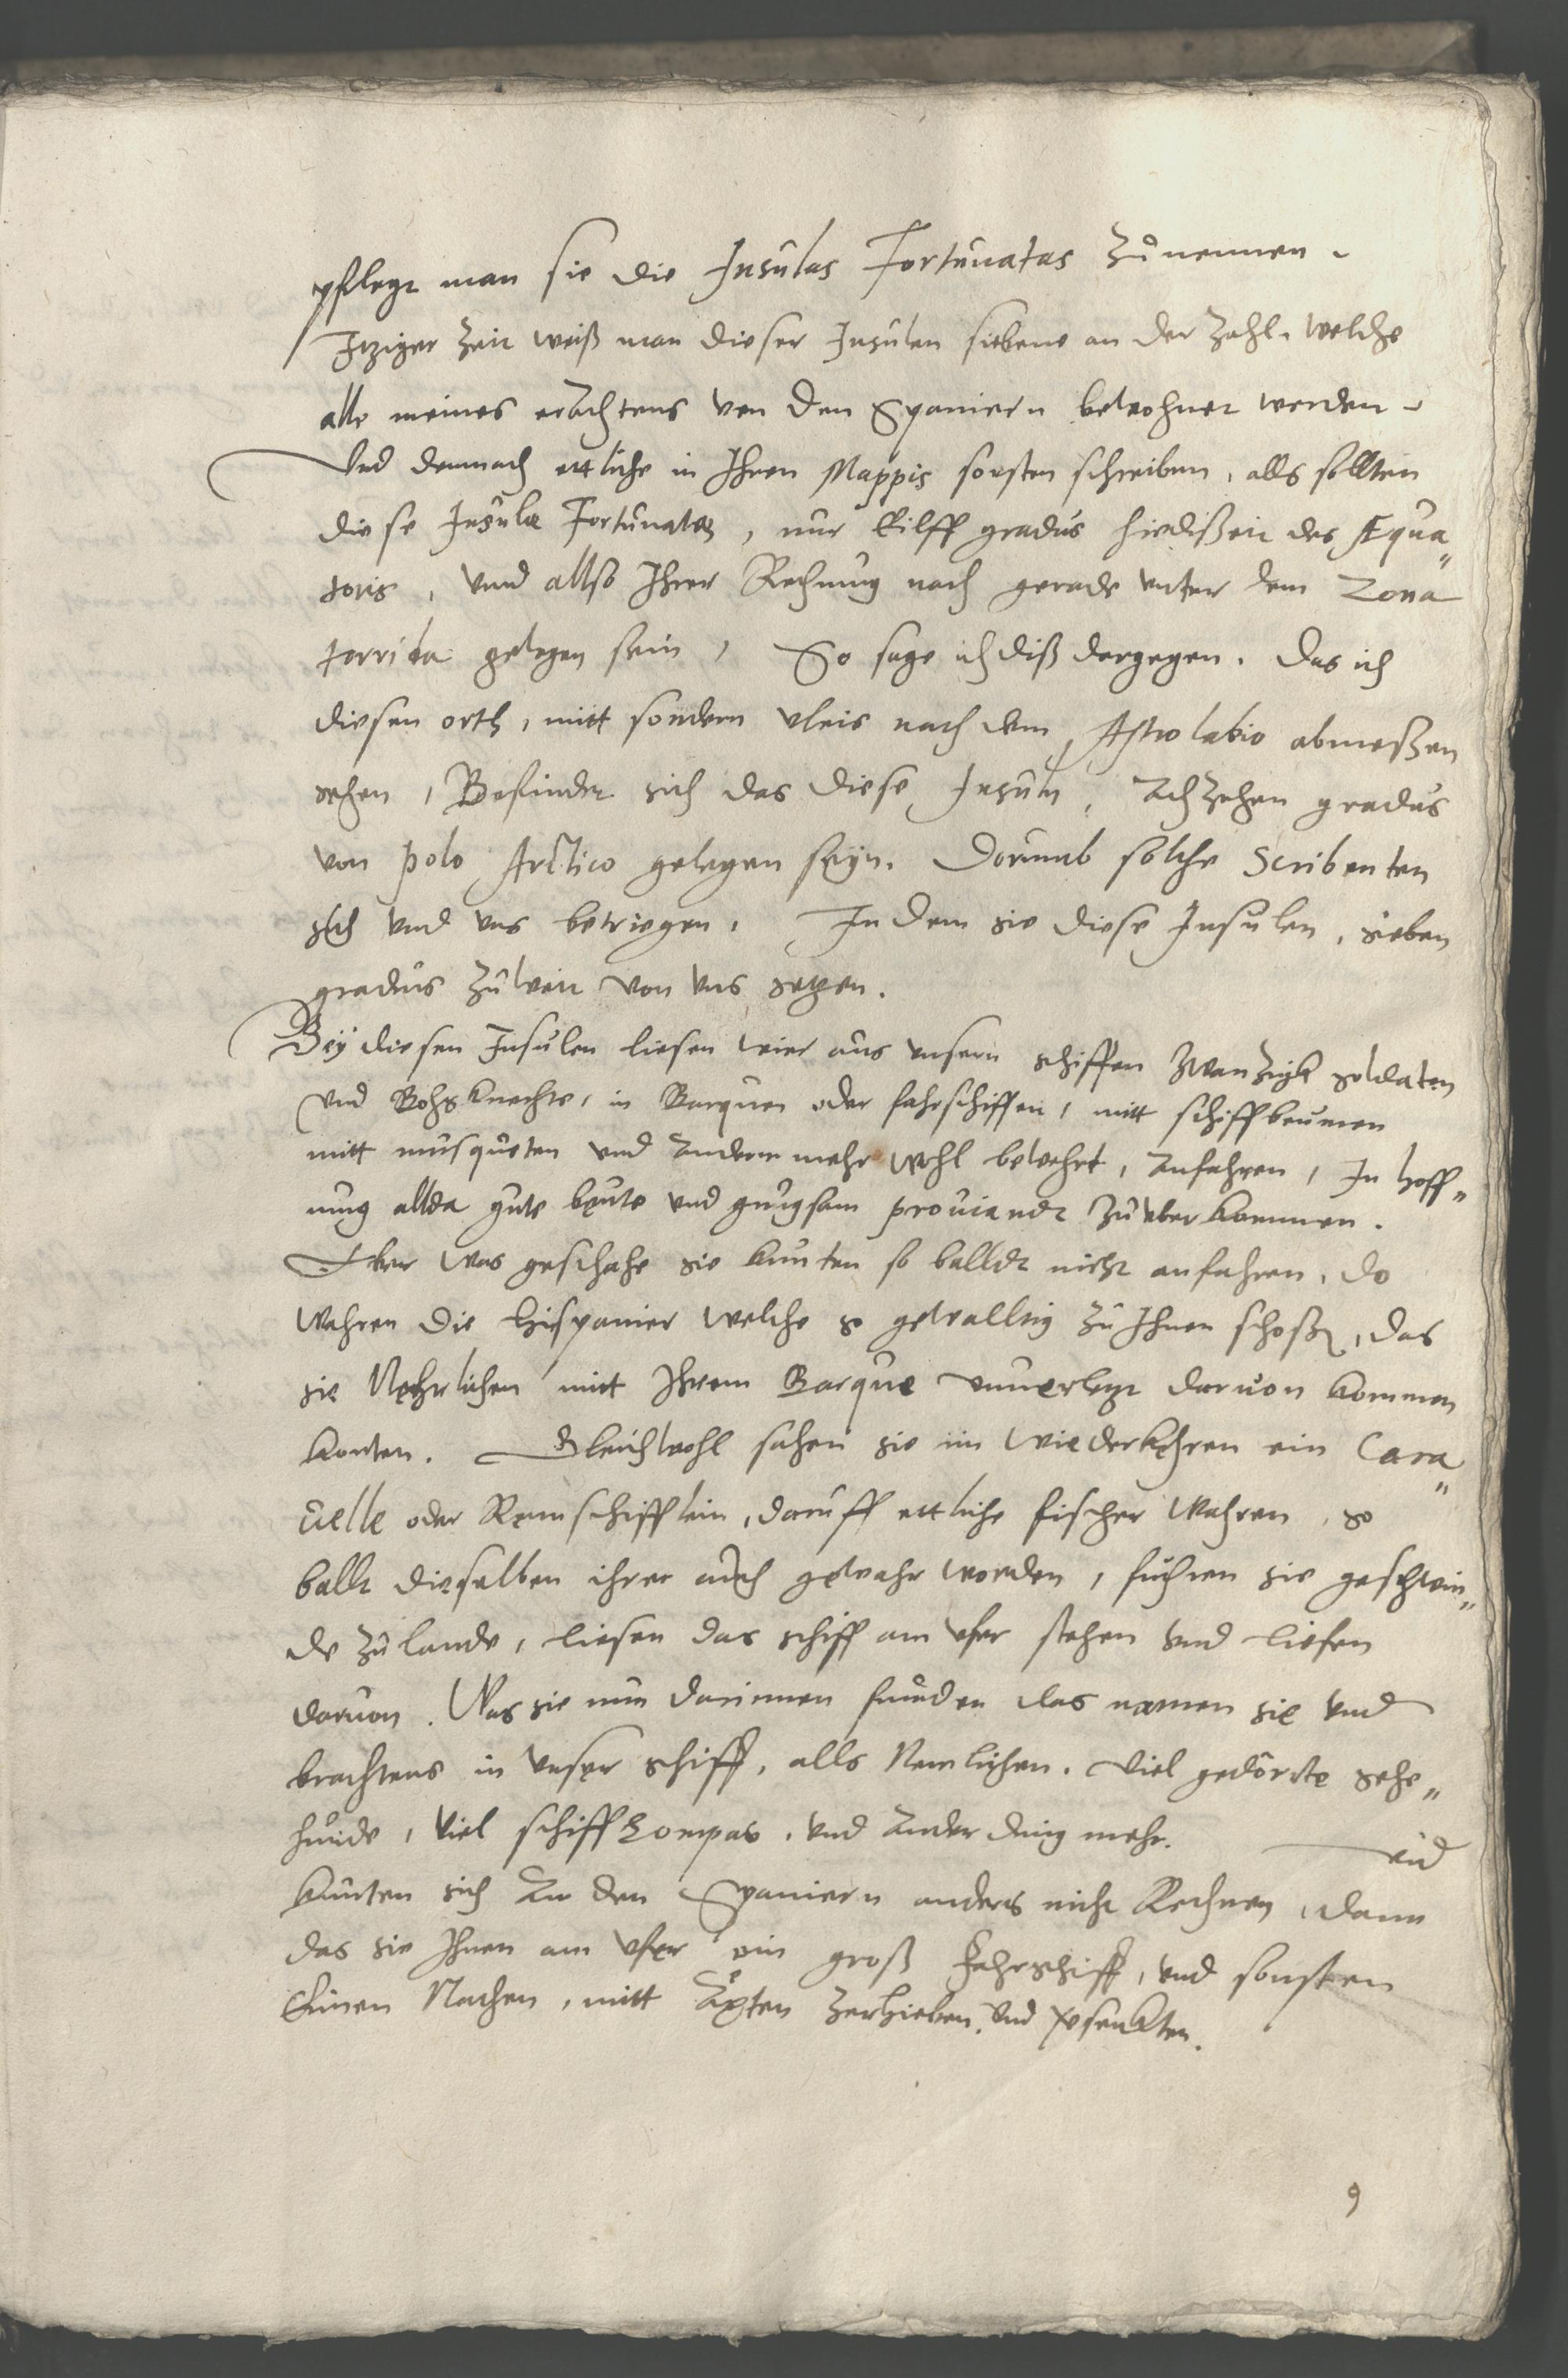 pflegt man sie die Insulas Fortunatas zu nennen.
Itziger Zeit weiß man dieser Insulen siebene an der Zahl. welche
alle meines erachtens von den Spaniern bewohnet werden.
Vnd demnach ettliche in Ihren Mappis sonsten schreiben, alls sollten
diese Insulæ Fortunatæ, nur Eilff gradus hiedißeit des Æqua„
toris, vnnd allso Ihrer Rechnung nach gerade vnter dem Zona
torrida gelegen sein, So sage ich diß dargegen. Das ich
diesen orth, mitt sondern vleis nach dem Astrolabio abmeßen
sehen, Befindet sich das diese Insuln, Achzehen gradus
von Polo Arctico gelegen seyn. Dorumb solche Scribenten
sich vnd vns betriegen. In dem sie diese Insulen, sieben
gradus zu weit von vns setzen.
Bey diesen Insulen liesen wier aus vnsern schiffen zwanzigk soldaten
vnd Bohsknechte, in Barquen oder fahrschiffen, mitt schiffbeumen
mitt musqueten vnd Anderm mehr wohl bewehrt, Anfahren, In hoff„
nung allda gute beute vnd gnugsam prouiandt zu vberkommen.
Aber was geschahe sie kunten so balldt nicht anfahren, do
wahren die Hispanier welche so gewalltig zu Ihnen schoßen, das
sie Nehrlichen mitt Ihrem Barque vnuerletzt daruon kommen
konten. Gleichwohl sahen sie im wiederkehren ein Cara„
velle oder Rennschifflein, daruff ettliche fischer wahren, so
balt dieselben ihrer auch gewahr worden, fuhren sie geschwin„
de zu lande, liesen das schiff am vfer stehen vnd liefen
daruon. Was sie nun darinnen funden das namen sie vnd
brachtens in vnser schiff, alls Nemlichen. viel gedörrte sehe„
hunde, viel schiff Compas, vnd Ander ding mehr. vnd
kunten sich An den Spaniern anders nicht Rechnen, dann
das sie Ihnen am vfer ein groß Fahrschiff, vnd sonsten
Einen Nachen, mitt Äxten zerhieben, vnd versenkten.
9